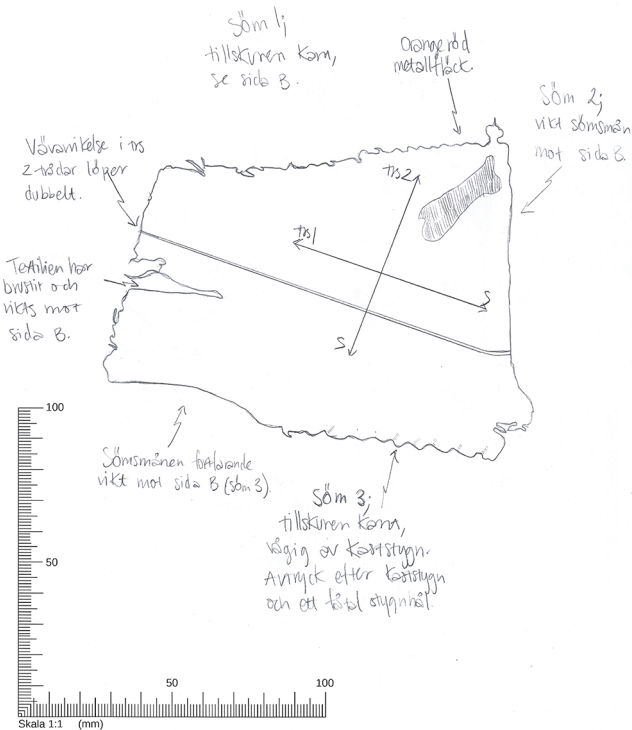 Söm 1;
tillskuren kant,
se sida B.
Orangeröd
metallfläck.
Söm 2;
vikt sömsmån
mot sida B.
Vävavvikelse i trs
2-trådar löper
dubbelt.
Textilien har
brustit och
vikts mot
sida B.
trs2
trs1
S
S
100
Sömsmånen fortfarande
vikt mot sida B (söm 3).
Söm 3;
tillskuren kant,
vågig av kaststygn.
Avtryck efter kaststygn
och ett fåtal stygnhål.
50
50
100
Skala 1:1 (mm)